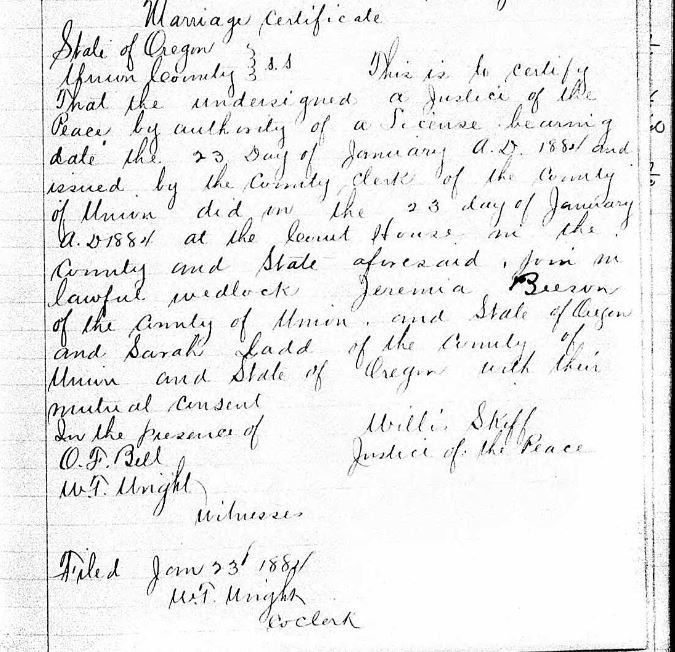 Marriage Certificate
State of Oregon
Union County } S.S This is to certify
That the undersigned a Justice of the
Peace by authority of a License bearing
date the 23 Day of January A.D. 1884 and
issued by the County Clerk of the County
of Union did on the 23 day of January
A.D 1884 at the Court House in the
County and State aforesaid, join in
lawful wedlock Jeremia Beeson
of the County of Union, and State of Oregon
and Sarah Ladd of the County of
Union and State of Oregon with their
mutual consent
In the presence of Willis Skiff
O.F. Bell Justice of the Peace
W.T. Wright
Witnesses
Filed Jan 23 1884
W.T. Wright
Co Clerk